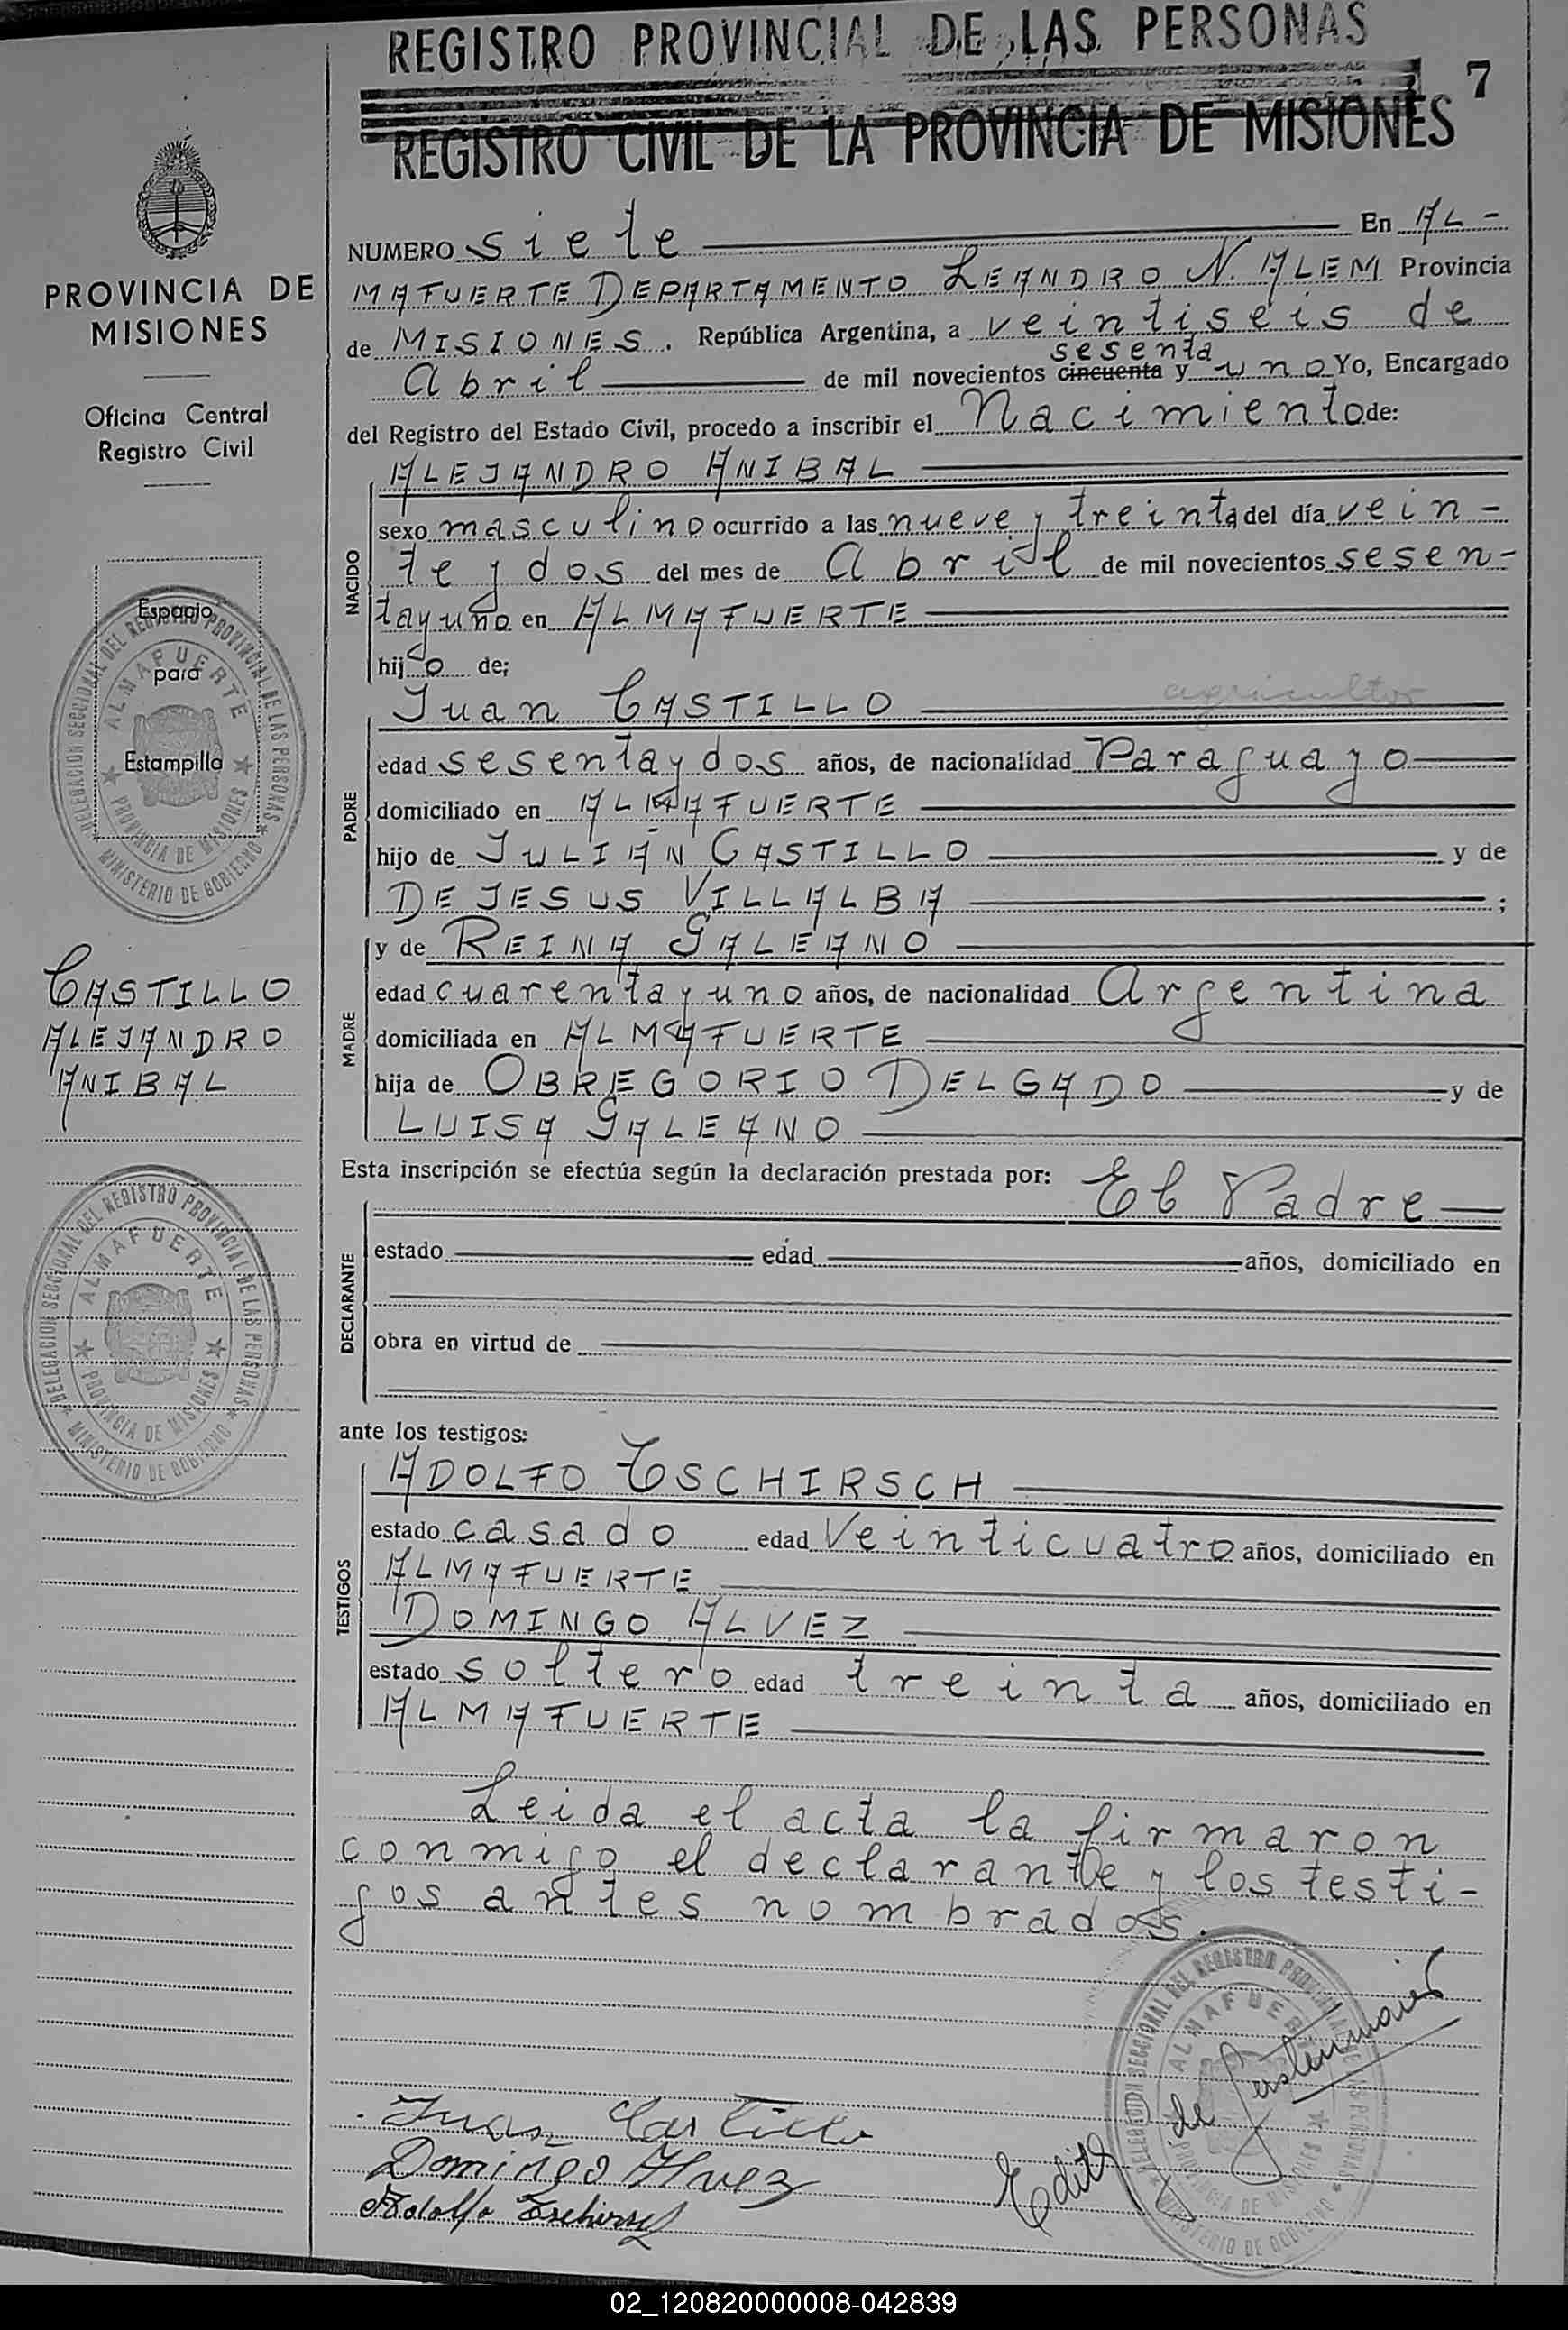 REGISTRO PROVINCIAL DE LAS PERSONAS
7
REGISTRO CIVIL DE LA PROVINCIA DE MISIONES
PROVINCIA DE
MISIONES
Oficina Central
Registro Civil
Espacio
para
Estampilla
DELEGACION SECCIONAL DEL REGISTRO PROVINCIAL DE LAS PERSONAS
ALMAFUERTE
PROVINCIA DE MISIONES
MINISTERIO DE GOBIERNO
CASTILLO
ALEJANDRO
ANIBAL
DELEGACION SECCIONAL DEL REGISTRO PROVINCIAL DE LAS PERSONAS
ALMAFUERTE
PROVINCIA DE MISIONES
MINISTERIO DE GOBIERNO
NUMERO siete En AL-
MAFUERTE DEPARTAMENTO LEANDRO N. ALEM Provincia
de MISIONES. República Argentina, a veintiseis de
sesenta
Abril de mil novecientos cincuenta y uno Yo, Encargado
del Registro del Estado Civil, procedo a inscribir el Nacimiento de:
NACIDO
ALEJANDRO ANIBAL
sexo masculino ocurrido a las nueve y treinta del día vein-
te y dos del mes de Abril de mil novecientos sesen-
tayuno en ALMAFUERTE
hijo de;
agricultor
PADRE
Juan CASTILLO
edad sesentaydos años, de nacionalidad Paraguayo
domiciliado en ALMAFUERTE
hijo de JULIÁN CASTILLO y de
DE JESUS VILLALBA ;
MADRE
y de REINA GALEANO
edad cuarentayuno años, de nacionalidad Argentina
domiciliada en ALMAFUERTE
hija de OBREGORIO DELGADO y de
LUISA GALEANO
Esta inscripción se efectúa según la declaración prestada por: El Padre
DECLARANTE
estado edad años, domiciliado en
obra en virtud de
ante los testigos:
TESTIGOS
ADOLFO TSCHIRSCH
estado casado edad Veinticuatro años, domiciliado en
ALMAFUERTE
DOMINGO ALVEZ
estado soltero edad treinta años, domiciliado en
ALMAFUERTE
Leida el acta la firmaron
conmigo el declarante y los testi-
gos antes nombrados.
DELEGACION SECCIONAL DEL REGISTRO PROVINCIAL DE LAS PERSONAS
ALMAFUERTE
PROVINCIA DE MISIONES
MINISTERIO DE GOBIERNO
Juan Castillo
Domingo Alvez
Adolfo Tschirsch
Edith de
02_120820000008-042839